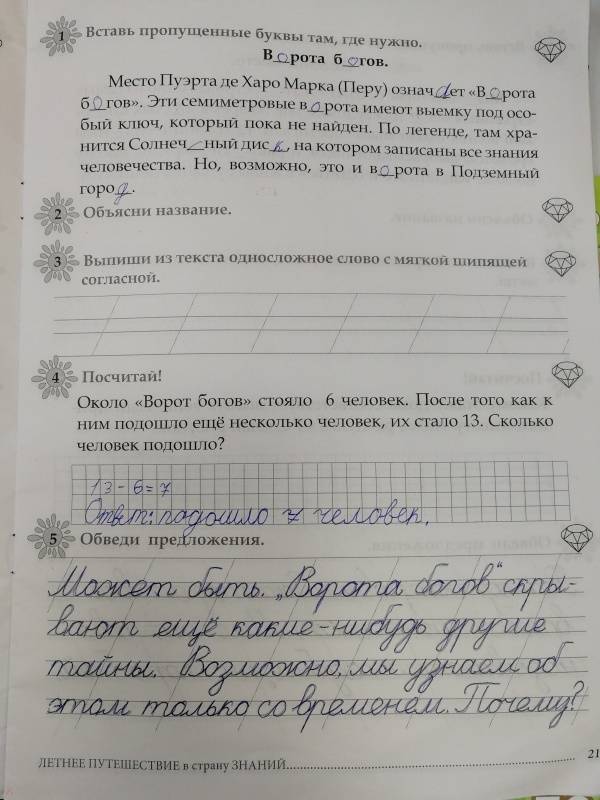 1 Вставь пропущенные буквы там, где нужно.
Ворота богов.
Место Пуэрта де Харо Марка (Перу) означает «Ворота
богов». Эти семиметровые ворота имеют выемку под осо-
бый ключ, который пока не найден. По легенде, там хра-
нится Солнеч_ный диск, на котором записаны все знания
человечества. Но, возможно, это и ворота в Подземный
город.
2 Объясни название.
3 Выпиши из текста односложное слово с мягкой шипящей
согласной.
4 Посчитай!
Около «Ворот богов» стояло 6 человек. После того как к
ним подошло ещё несколько человек, их стало 13. Сколько
человек подошло?
13-6=7
Ответ: подошло 7 человек.
5 Обведи предложения.
Может быть. „Ворота богов“ скры-
вают ещё какие-нибудь другие
тайны. Возможно, мы узнаем об
этом только со временем. Почему?
ЛЕТНЕЕ ПУТЕШЕСТВИЕ в страну ЗНАНИЙ 21